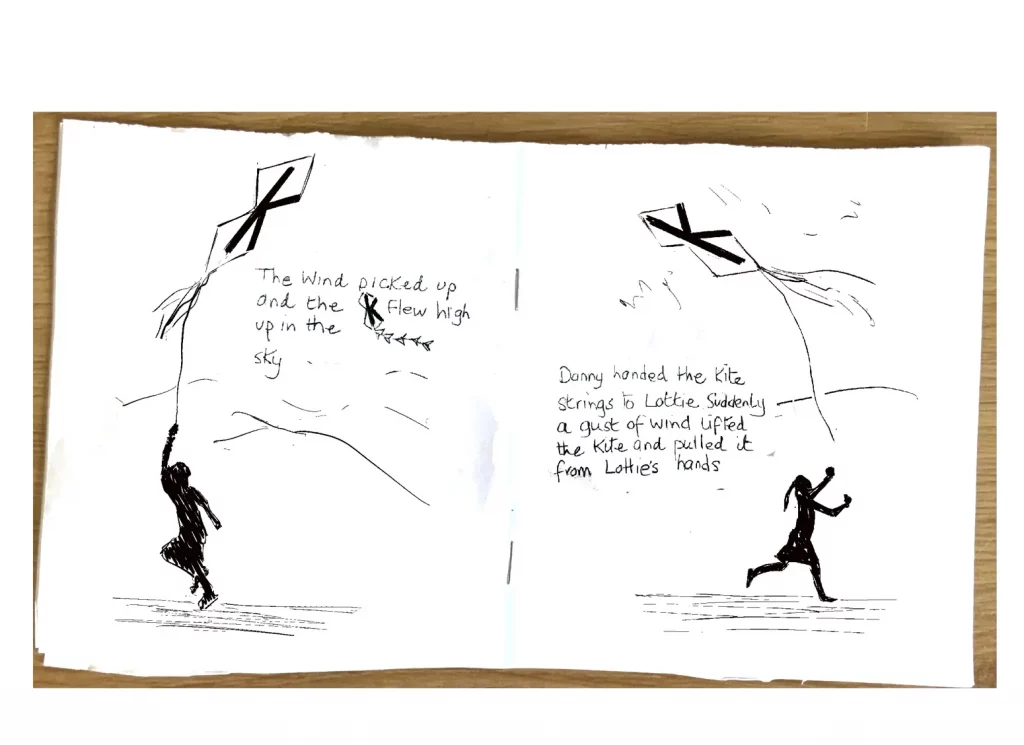 The Wind picked up
and the K flew high
up in the
sky
Danny handed the Kite
strings to Lottie Suddenly
a gust of wind lifted
the Kite and pulled it
from Lottie's hands
K
K